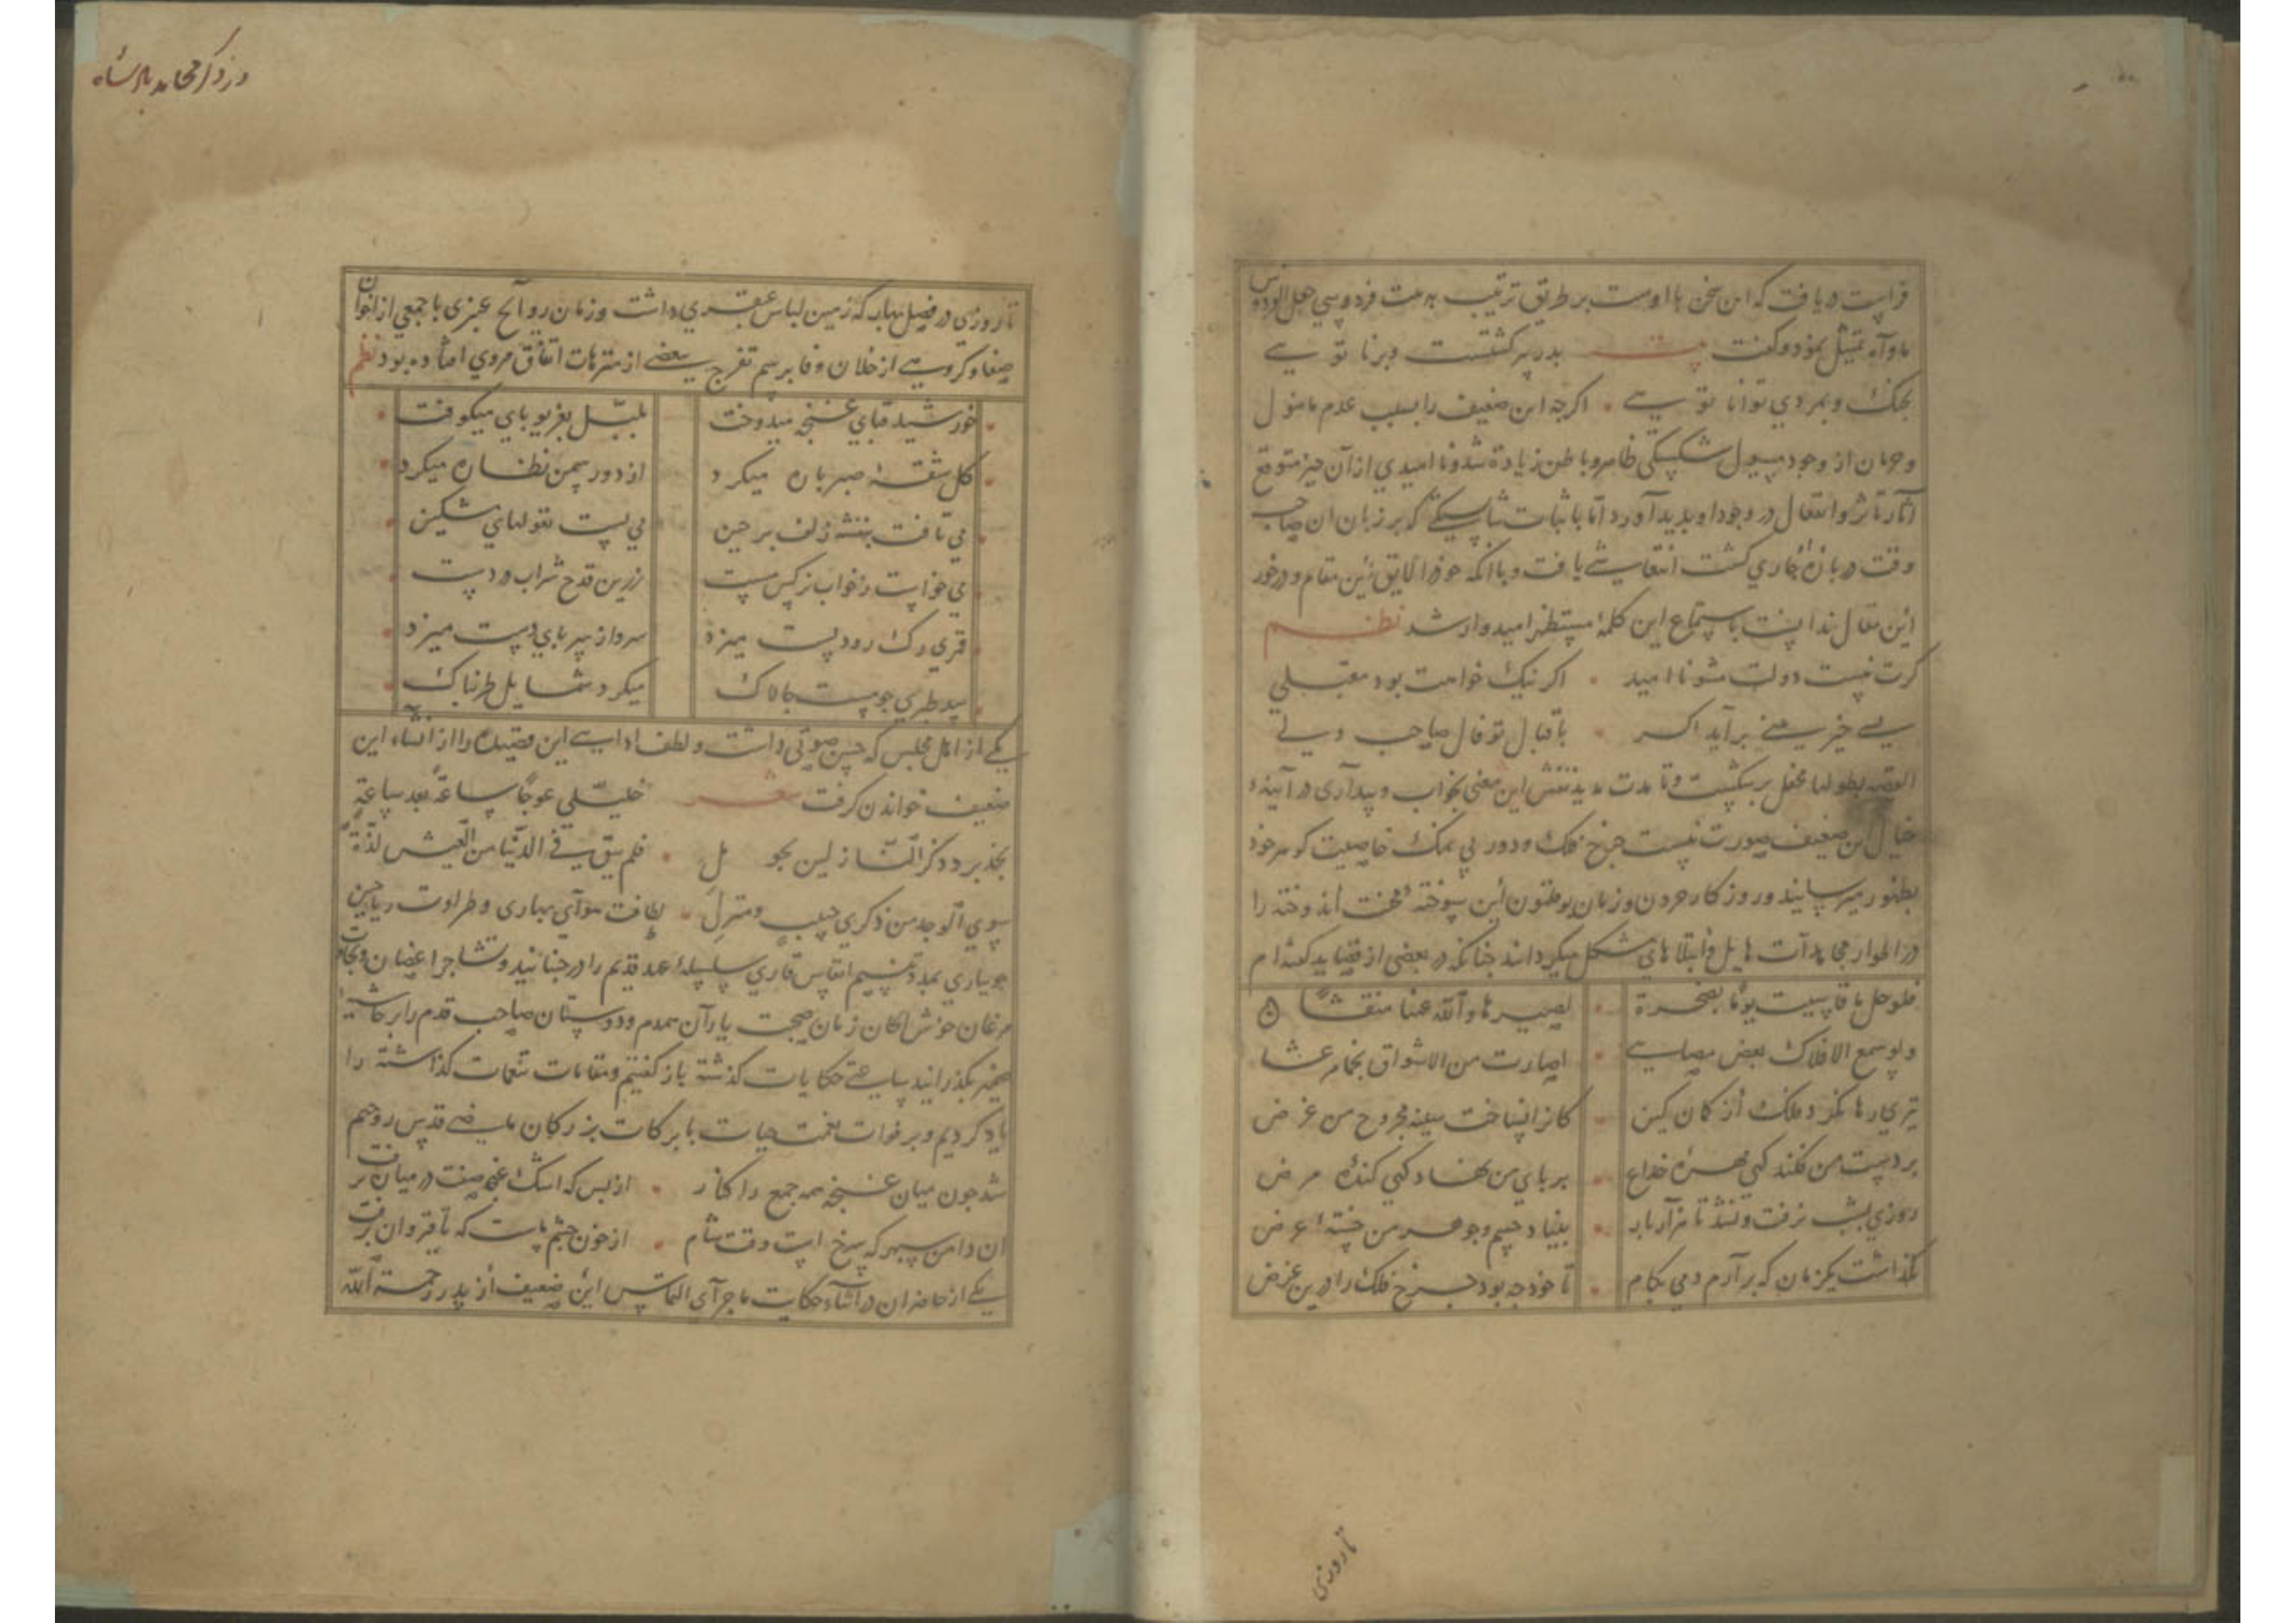 فراست دریافت که این سخن با اوست بر طریق ترتیب به بیت فردوسی جعل الفردوس
ماواه تمثیل نمود و گفت بیت بدر پیر گشتست و برنا تویی
بجنک و بمردی توانا تویی اگرچه این ضعیف را بسبب عدم مامول
و حرمان از وجود مسول شکستگی ظاهر و باطن زیادة شد و ناامیدی از آن حیز متوقع
آثار تاثر و انفعال در وجود او بدید آورد اما باثبات که بر زبان ان صاحب
وقت درباره جاری گشت انتعاشی یافت و باآنکه خود را لایق این مقام و درخور
این مقال ندانست باستماع این کلمه مستظهر امیدوار شد نظم
گرت نیست دولت مشو ناامید اگر نیک خواهت بود مقبلی
بسی خیر برآید اگر باقبال تو فال صاحب دلی
القصه محفل بر شکست و تا مدت مدید نقش این معنی بخواب و بیداری در آینه
خیال این ضعیف صورت نبست چرخ فلک و دور بی نمک خاصیت گوهر خود
بظهور میرسانید و روزکار حرون و زمان بوقلمون این سوخته محنت اندوخته را
در اطوار مجاهدات هایل و ابتلاهای مشکل میکردانند چنانکه در بعضی از قصاید گفته‌ام
فلو حل ما قاسیت یوما بصخرة لصیرها والله عهنا منفشا
ولو سمع الافلاک بعض مصایبی لصارت من الاشواق
تیری رها نکرد فلک از کمان کین کانرا نساخت سینه مجروح من غرض
بر دست من فکند کهی مهره خداع بر پای من نهاد کهی کنده مرض
روزی بشب نرفت و نشد تا هزار بار بنیاد جسم و جوهر من خسته عرض
نگذاشت یکزمان که برآرم دمی بکام تا خود چه بود چرخ فلک را درین غرض
تا روزی
در ذکر محامد پادشاه
تا روزی در فصل بهار که زمین لباس عبقری داشت و زمان روائح عنبری با جمعی از اخوان
صفا و گروهی از خلان وفا برسم تفرج ببعضی از متنزهات اتفاق مروری افتاده بود نظم
خورشید قبای غنچه میدوخت بلبل بغریو پای میکوفت
کل شقه صبر پاره میکرد از دور سمن نظاره میکرد
می تافت بنفشه زلف پرچین می بست مشکین
می خواست ز خواب نرکس مست زرین قدح شراب در دست
قمری رک رود پست میزد سرو از سر پای دست میزد
بید طبری چو مست چالاک میکرد شمایل طربناک
یکی از اهل مجلس که حسن صوتی داشت و لطف ادایی این قصیده را از انشاء این
ضعیف خواندن گرفت شعر خلیلی عوجا ساعة بعد ساعة
بجدبر دذکر النازلین بحومل فلم یبق فی الدنیا من العیش لذة
سوی الوجد من ذکری حبیب ومنزل لطافت هوای بهاری و طراوت ریاحین
جویباری بمدد نسیم انفاس قاری سلسله عهد قدیم را در جنبانید و تشاجر اغصان و تجاوب
مرغان خوش الحان زمان صحبت یاران همدم و دوستان صاحب قدم را بر حاشیه
ضمیر بگذرانید ساعتی حکایات گذشته باز گفتیم و مقامات تنعمات گذاشته را
یاد کردیم و بر فوات نعمت حیات با برکات بزرکان ماضی قدس روحهم
شد چون میان غنچه همه جمع را کنار از بس که اشک غنچه صفت در میان گرفت
ان دامن سپهر که سرخ است وقت شام از خون چشم ماست که تا قیروان گرفت
یکی از حاضران در اثناء حکایت ماجرای التماس این ضعیف از پدر رحمة الله